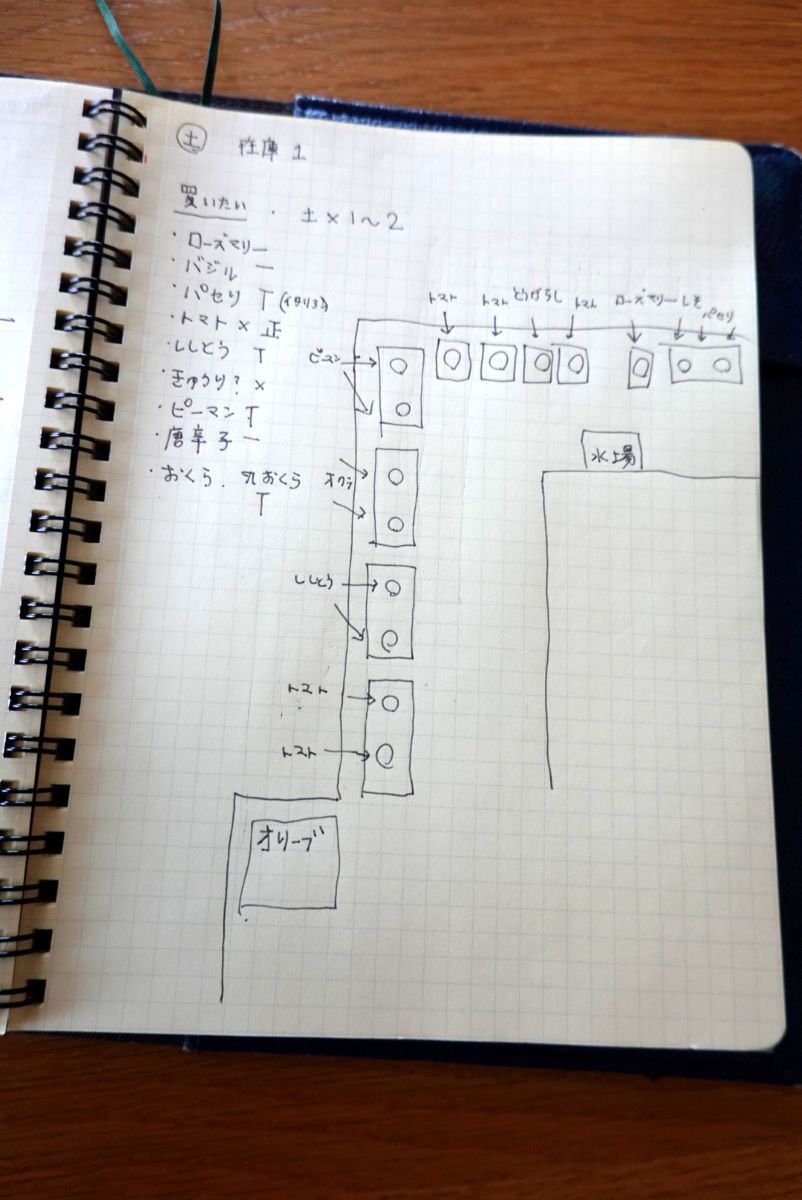 土 在庫 1
買いたい ・ 土×1〜2
・ローズマリー 一
・バジル 一
・パセリ T (イタリアン)
・トマト × 正
・ししとう T
・きゅうり? ×
・ピーマン T
・唐辛子 一
・おくら、丸おくら
T
トマト トマト とうがらし トマト ローズマリー しそ パセリ
ピーマン
水場
オクラ
ししとう
トマト
トマト
オリーブ